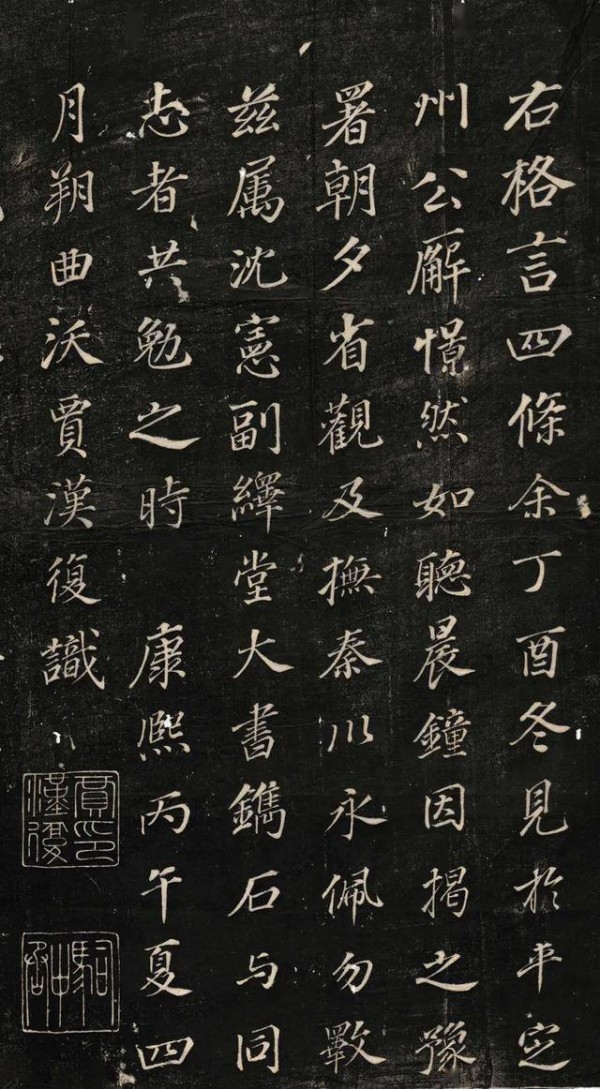 右格言四條余丁酉冬見於平定
州公廨憬然如聽晨鐘因揭之豫
署朝夕省觀及撫秦川永佩勿斁
兹属沈憲副繹堂大書鐫石与同
志者共勉之時 康熙丙午夏四
月朔曲沃賈漢復識
賈印漢復